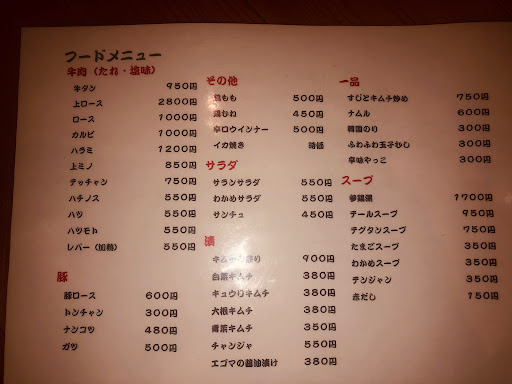 フードメニュー
牛肉（たれ・塩味）
牛タン 950円
上ロース 2800円
ロース 1000円
カルビ 1000円
ハラミ 1200円
上ミノ 850円
テッチャン 750円
ハチノス 550円
ハツ 550円
ハツモト 550円
レバー（加熱） 550円
豚
豚ロース 600円
トンチャン 300円
ナンコツ 480円
ガツ 500円
その他
鶏もも 500円
鶏むね 450円
辛口ウインナー 500円
イカ焼き 時価
サラダ
サランサラダ 550円
わかめサラダ 550円
サンチュ 450円
漬
キムチ盛り 900円
白菜キムチ 380円
キュウリキムチ 380円
大根キムチ 380円
青菜キムチ 350円
チャンジャ 550円
エゴマの醤油漬け 380円
一品
すじとキムチ炒め 750円
ナムル 600円
韓国のり 300円
ふわふわ玉子むし 300円
辛味やっこ 300円
スープ
参鶏湯 1700円
テールスープ 950円
テグタンスープ 750円
たまごスープ 350円
わかめスープ 350円
テンジャン 350円
赤だし 150円